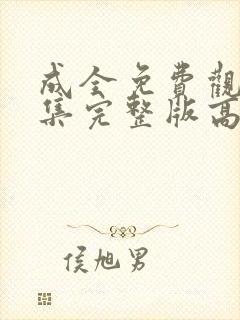 成全免費觀
集完整版高
侯旭男